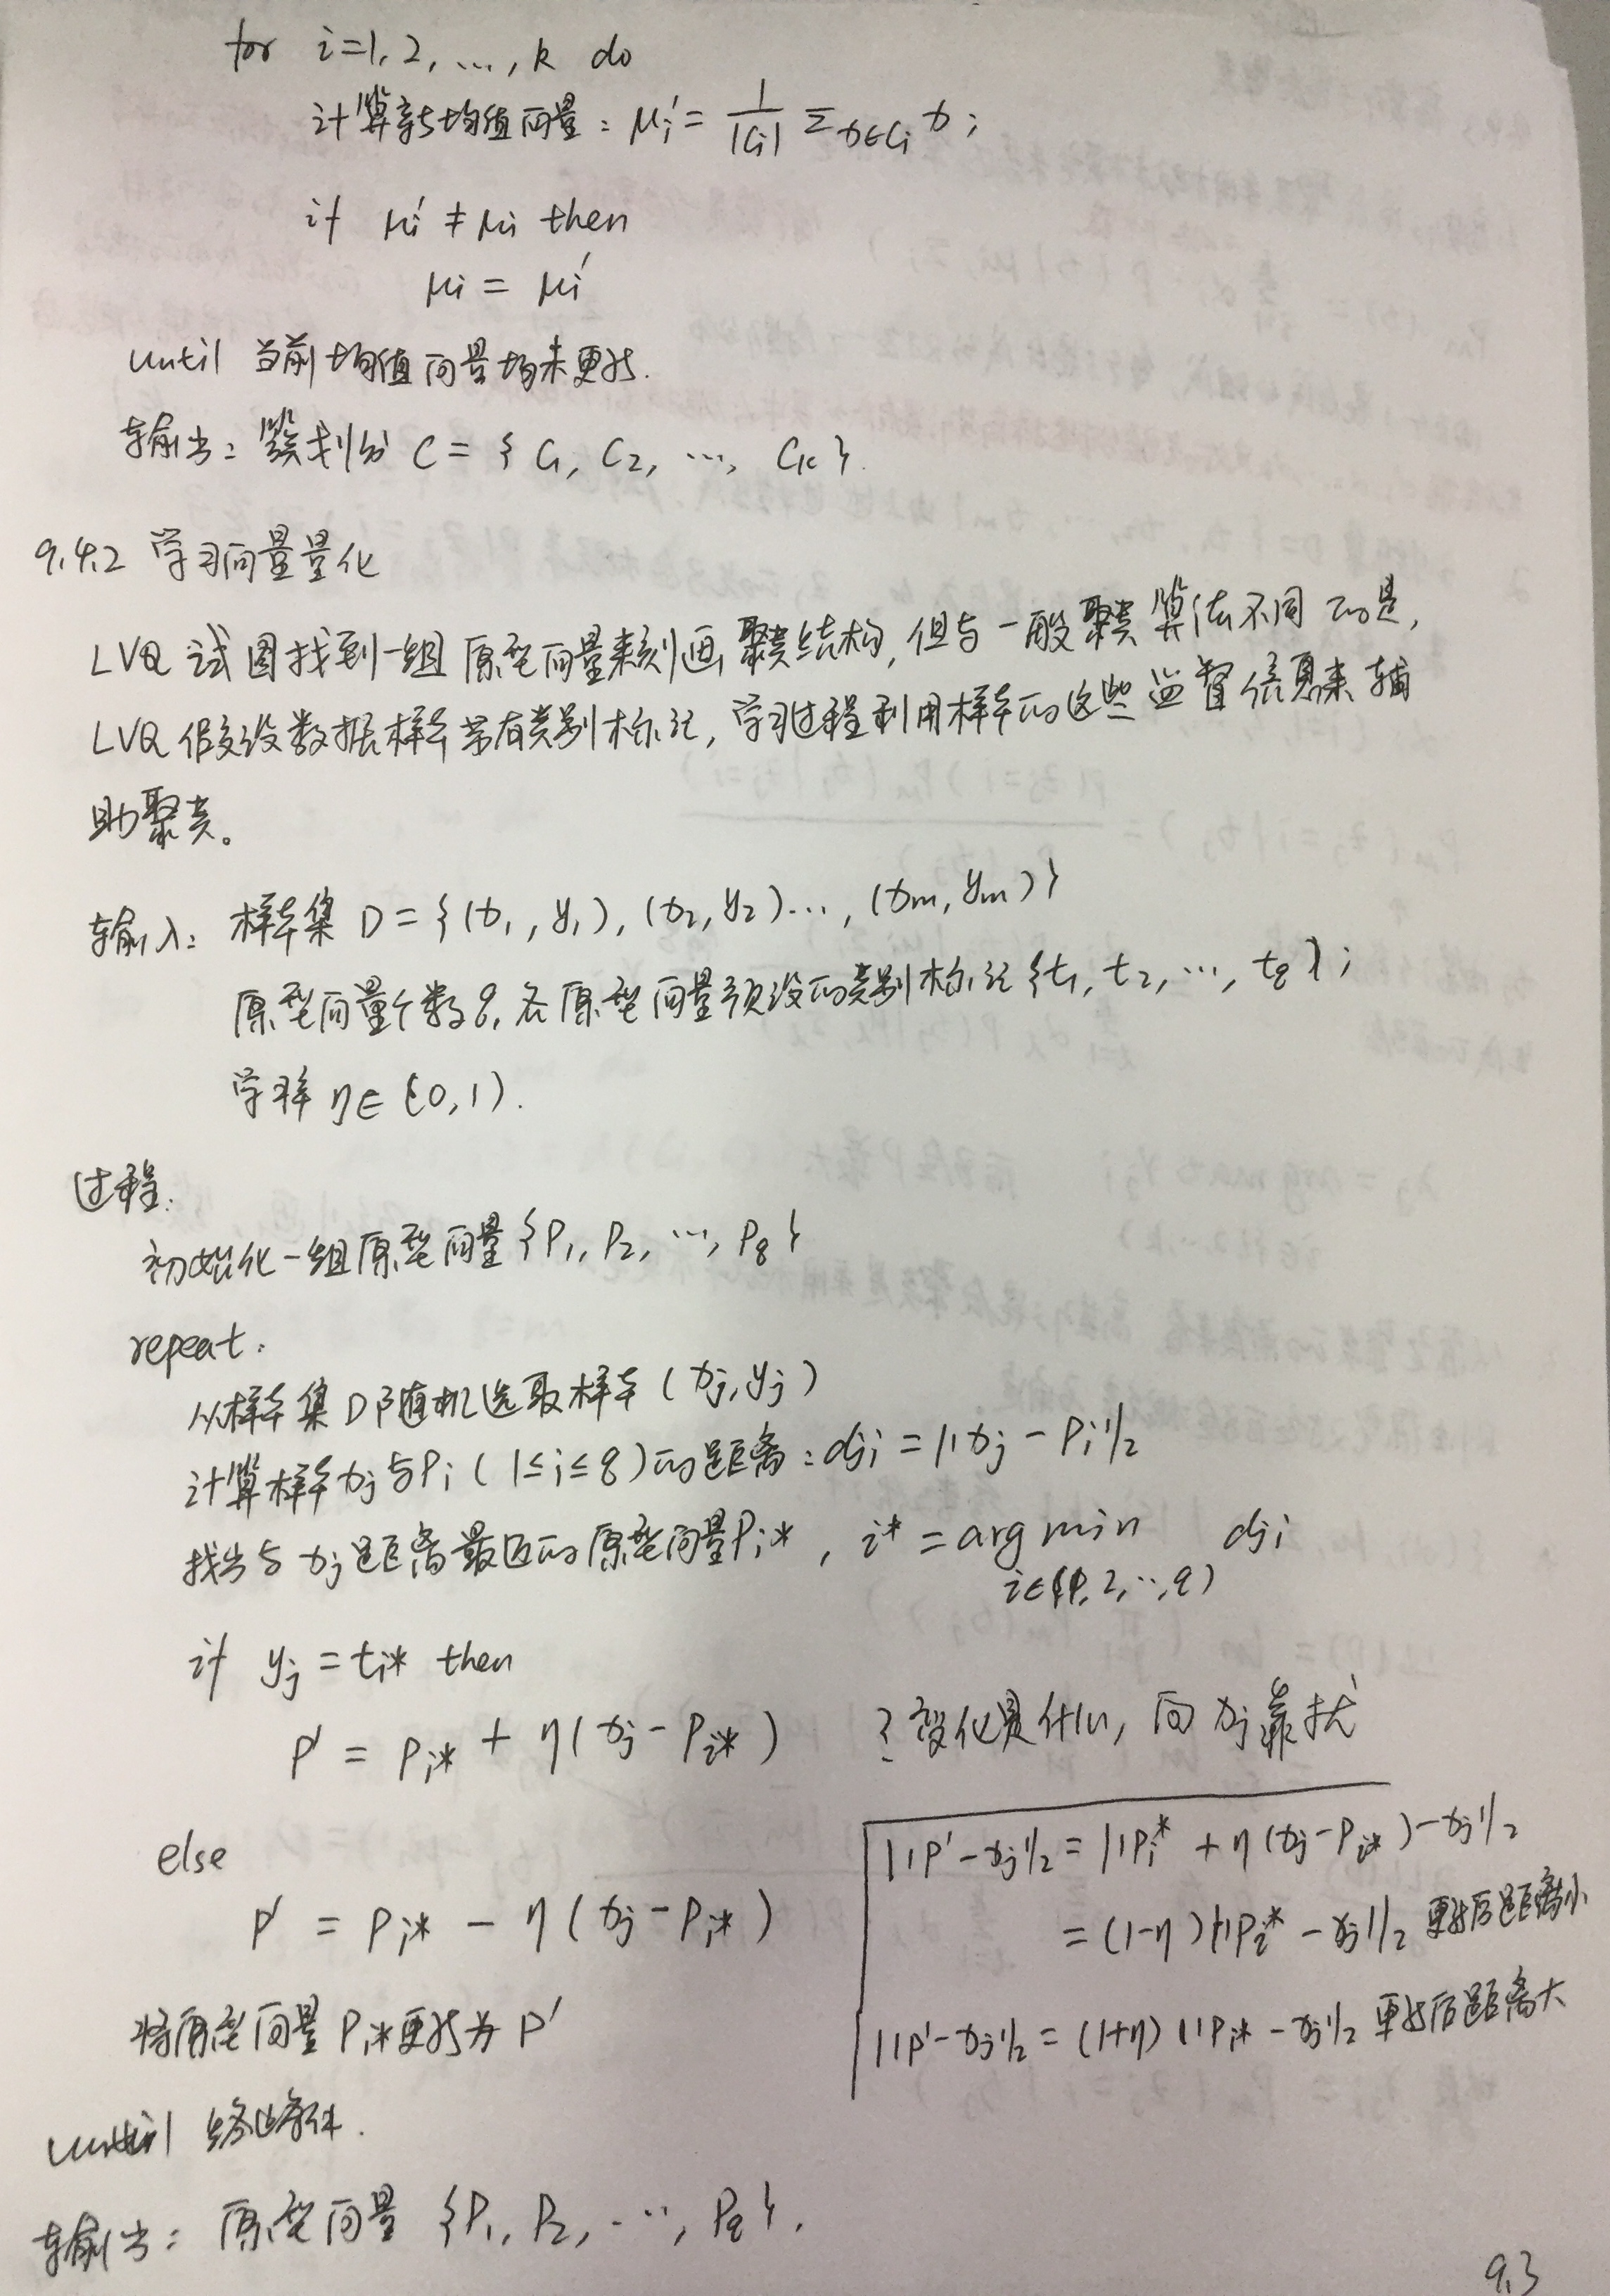 for i=1,2,…,k do
计算新均值向量：μi′= 1/|Ci| Σx∈Ci x；
if μi′≠μi then
μi = μi′
until 当前均值向量均未更新.
输出：簇划分 C = {C1, C2, …, Ck}.
9.4.2 学习向量量化
LVQ 试图找到一组原型向量来刻画聚类结构,但与一般聚类算法不同的是,
LVQ 假设数据样本带有类别标记,学习过程利用样本的这些监督信息来辅
助聚类。
输入：样本集 D = {(x1, y1), (x2, y2)…, (xm, ym)}
原型向量个数q,各原型向量预设的类别标记{t1, t2, …, tq}；
学习率 η∈(0,1).
过程.
初始化一组原型向量{P1, P2, …, Pq}
repeat:
从样本集D随机选取样本(xj,yj)
计算样本xj与Pi(1≤i≤q)的距离：dji = ||xj - Pi||2
找出与xj距离最近的原型向量Pi*, i* = arg min dji
i∈{1,2,…,q}
if yj = ti* then
P′ = Pi* + η(xj - Pi*) 变化是什么,向xj靠拢
else
||P′-xj||2 = ||Pi* + η(xj-Pi*)-xj||2
P′ = Pi* - η(xj-Pi*)
=(1-η)||Pi* - xj||2 更新后距离小
将原型向量Pi*更新为P′
||P′-xj||2 = (1+η)||Pi* - xj||2 更新后距离大
until 终止条件.
输出：原型向量{P1, P2, …, Pq}.
9.3